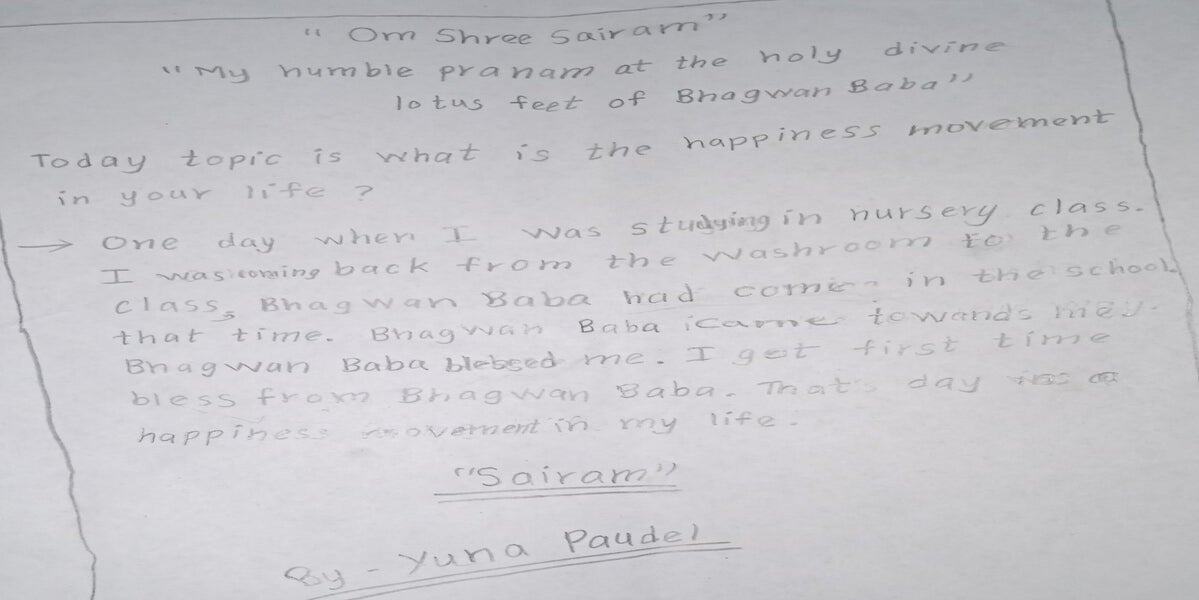 " Om Shree Sairam"
"My humble pranam at the holy divine
lotus feet of Bhagwan Baba"
Today topic is what is the happiness movement
in your life ?
→ One day when I was studying in nursery class.
I was coming back from the washroom to the
class, Bhagwan Baba had come in the school
that time. Bhagwan Baba came towards me.
Bhagwan Baba blessed me. I get first time
bless from Bhagwan Baba. That's day is a
happiness movement in my life.
"Sairam"
By - Yuna Paudel